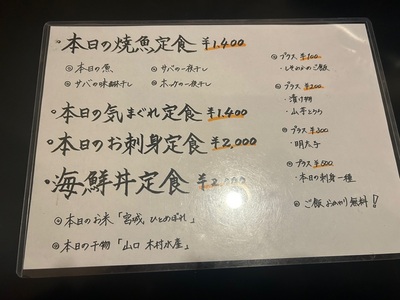 ・本日の焼魚定食 ¥1,400
◎本日の魚
◎サバの一夜干し
◎サバの味醂干し
◎ホッケの一夜干し
・本日の気まぐれ定食 ¥1,400
・本日のお刺身定食 ¥2,000
・海鮮丼定食
◎本日のお米「宮城、ひとめぼれ」
◎本日の干物「山口 木村水産」
◎プラス ¥100
・しそわかめご飯
◎プラス ¥200
・漬け物
・山芋とろろ
◎プラス ¥300
・明太子
◎プラス ¥500
・本日の刺身一種
◎ご飯おかわり無料!